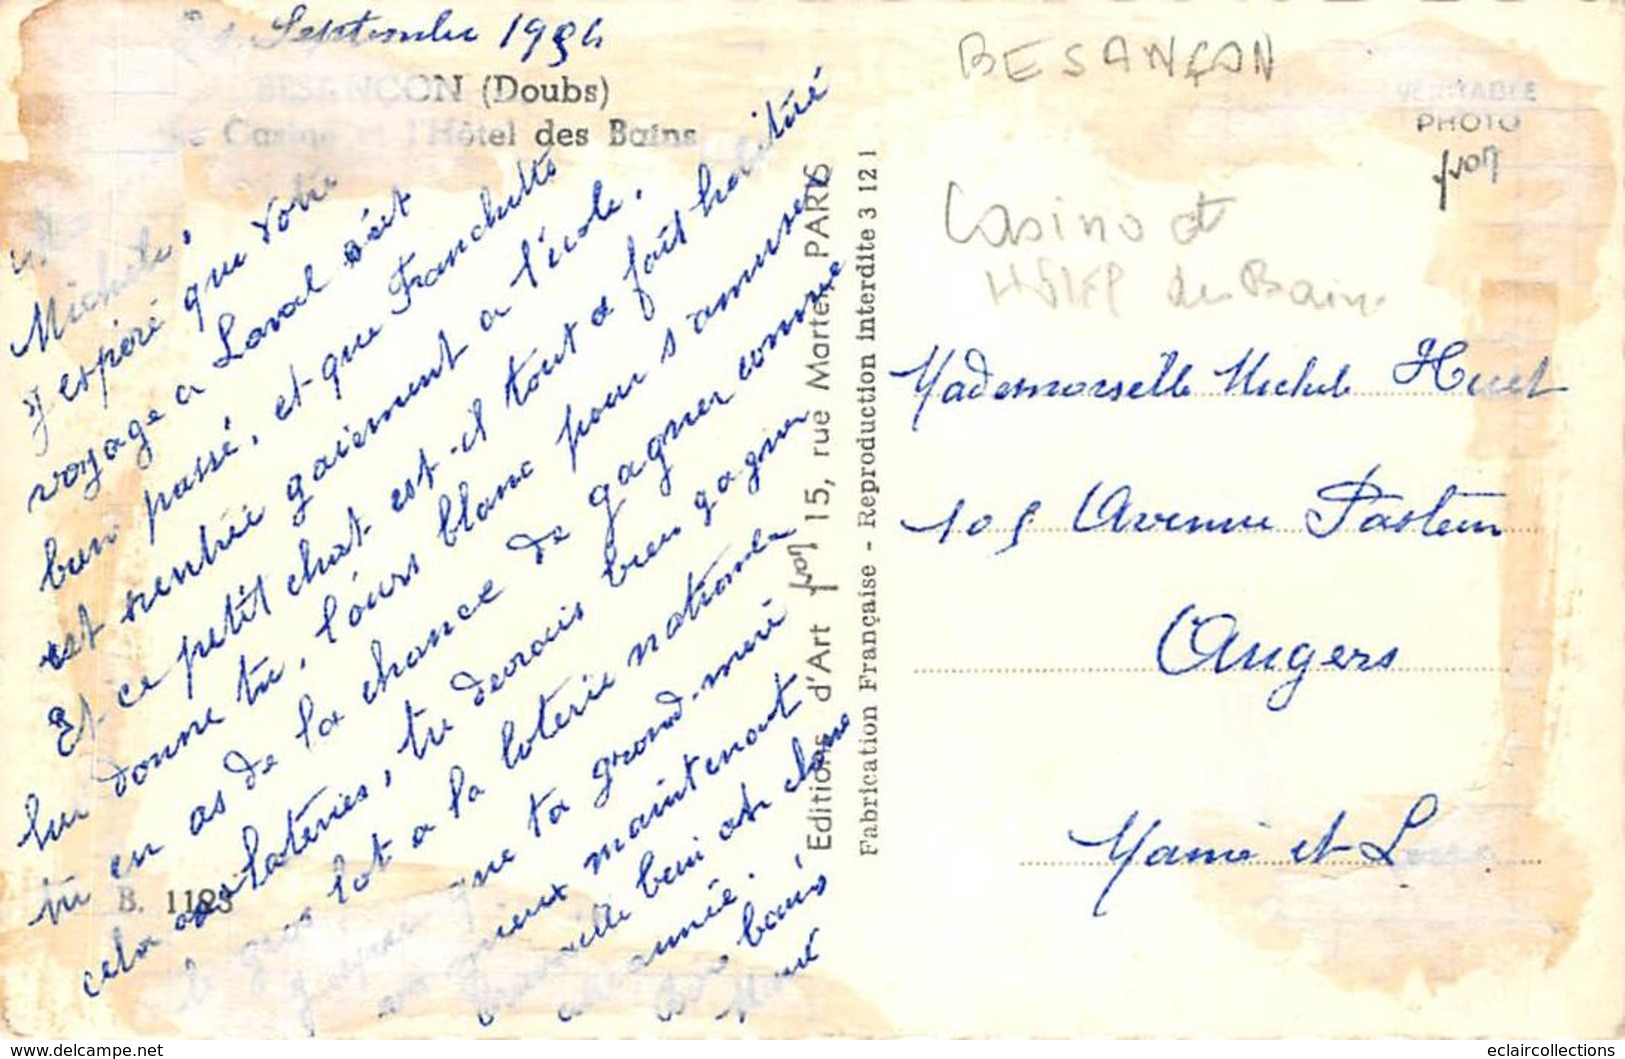 Septembre 1954
BESANÇON (Doubs)
Le Casino et l'Hôtel des Bains
Michele,
J'espère que votre
voyage a Laval s'est
bien passé, et que Franchette
est rentrée gaiement a l'école.
Et ce petit chat est-il tout a fait habitué
lui donne tu, l'ours blanc pour s'amuser
tu en as de la chance de gagner comme
cela aux loteries, tu devrais bien gagner
le gros lot a la loterie nationale
J'espère que ta grand-mère
va mieux maintenant
année.
Bons baisers
B. 1123
Editions d'Art Yvon 15, rue Martel, PARIS
Fabrication Française - Reproduction interdite 3 12 1
BESANÇON
VÉRITABLE
PHOTO
Yvon
Casino et
Hôtel des Bains
Mademoiselle Michele Huet
105 Avenue Pasteur
Angers
Maine et Loire
delcampe.net
eclaircollections